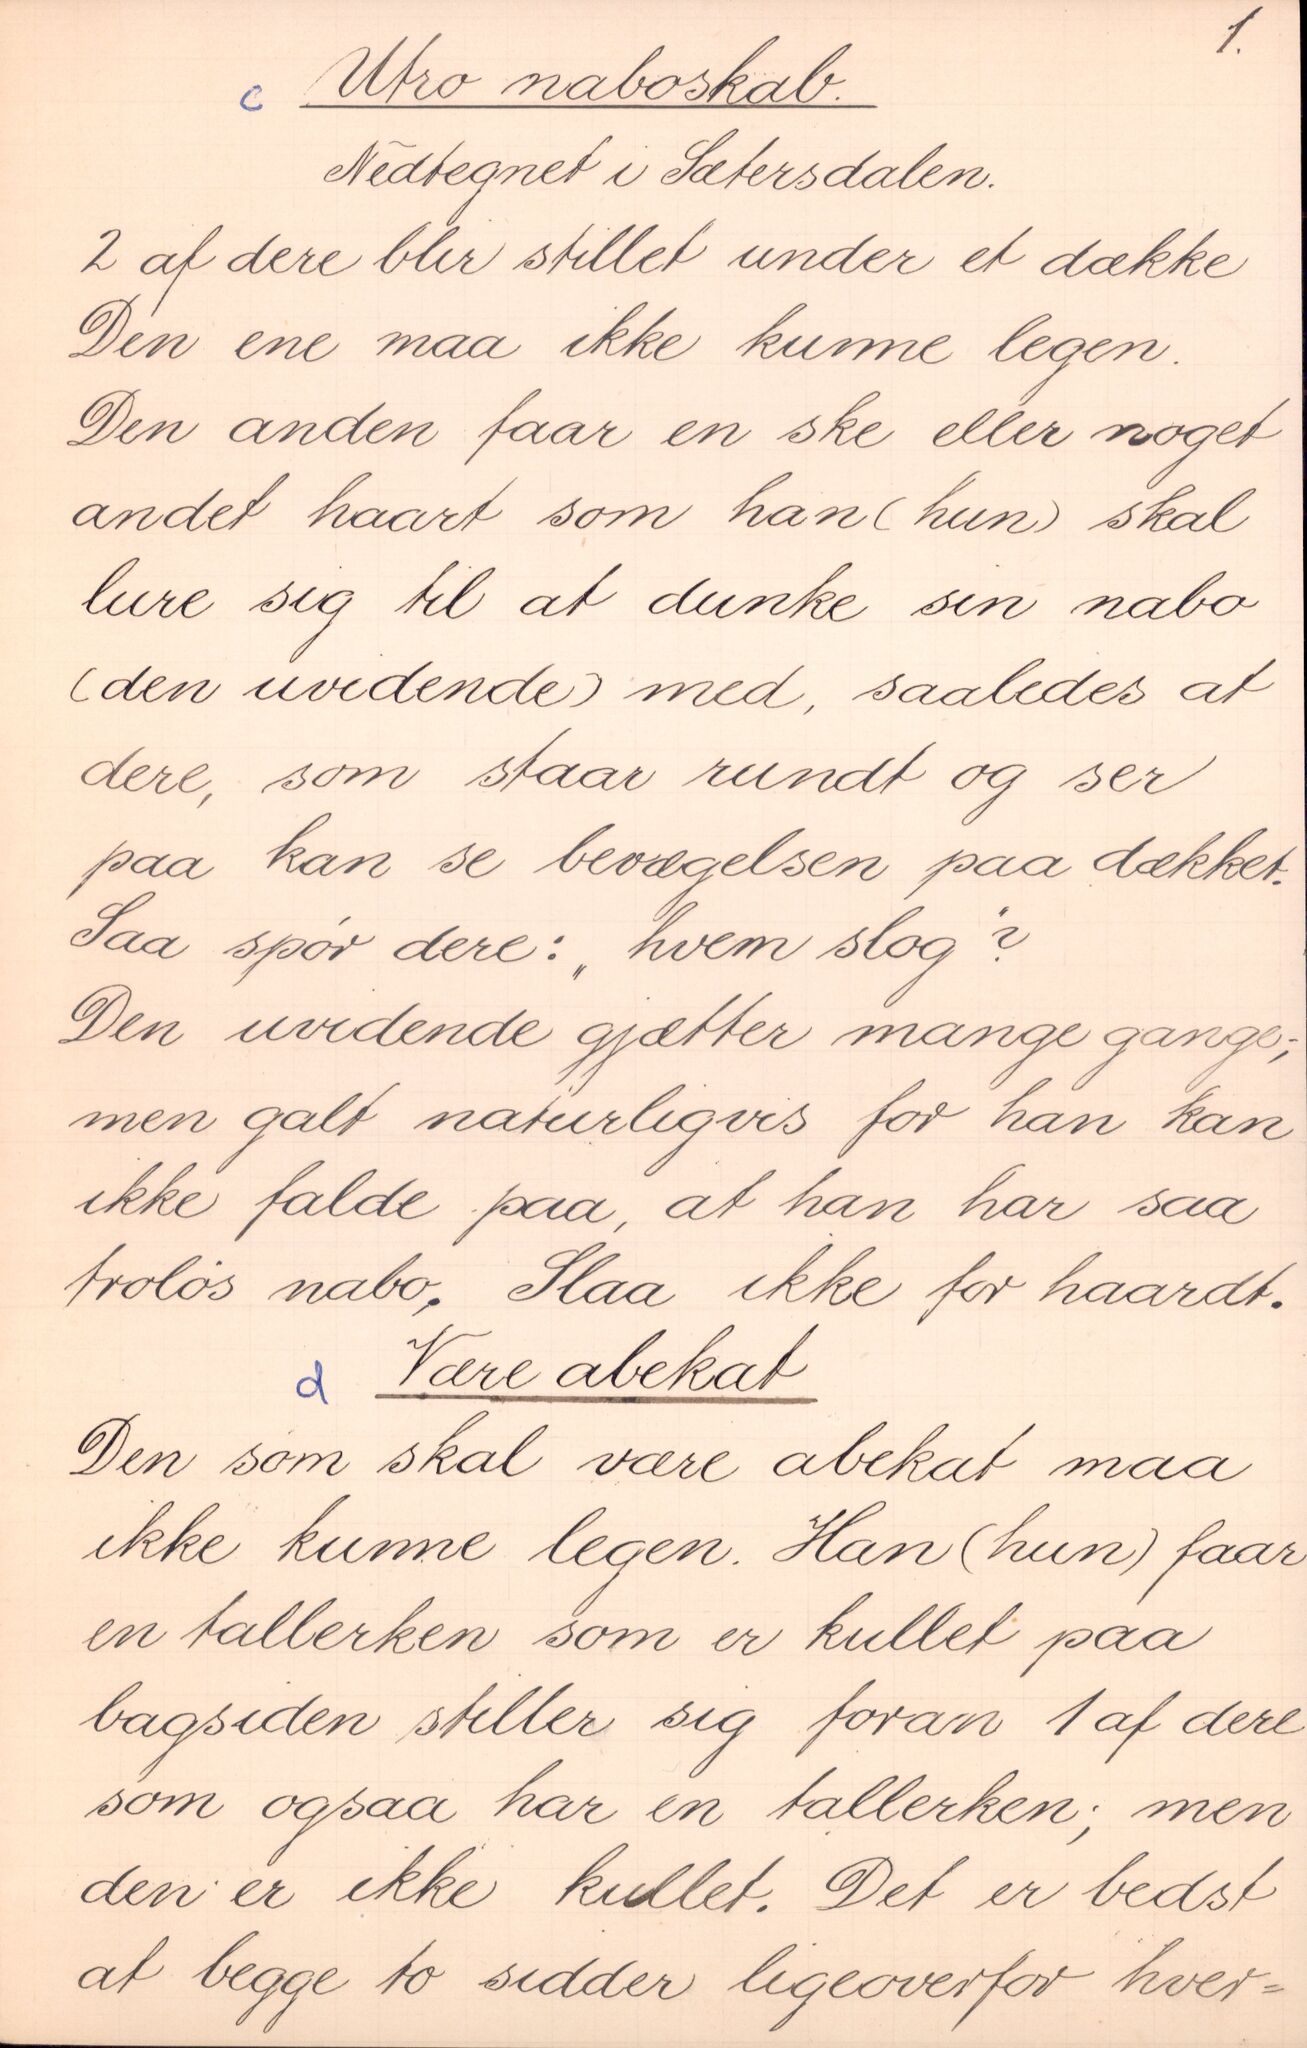 1.
c Utro naboskab.
Nedtegnet i Sætersdalen.
2 af dere blir stillet under et dække
Den ene maa ikke kunne legen.
Den anden faar en ske eller noget
andet haart som han (hun) skal
lure sig til at dunke sin nabo
(den uvidende) med, saaledes at
dere, som staar rundt og ser
paa kan se bevægelsen paa dækket.
Saa spór dere: „hvem slog“?
Den uvidende gjætter mange gange;
men galt naturligvis for han kan
ikke falde paa, at han har saa
trolós nabo. Slaa ikke for haardt.
d Være abekat
Den som skal være abekat maa
ikke kunne legen. Han (hun) faar
en tallerken som er kullet paa
bagsiden stiller sig foran 1 af dere
som ogsaa har en tallerken; men
den er ikke kullet. Det er bedst
at begge to sidder ligeoverfor hver=